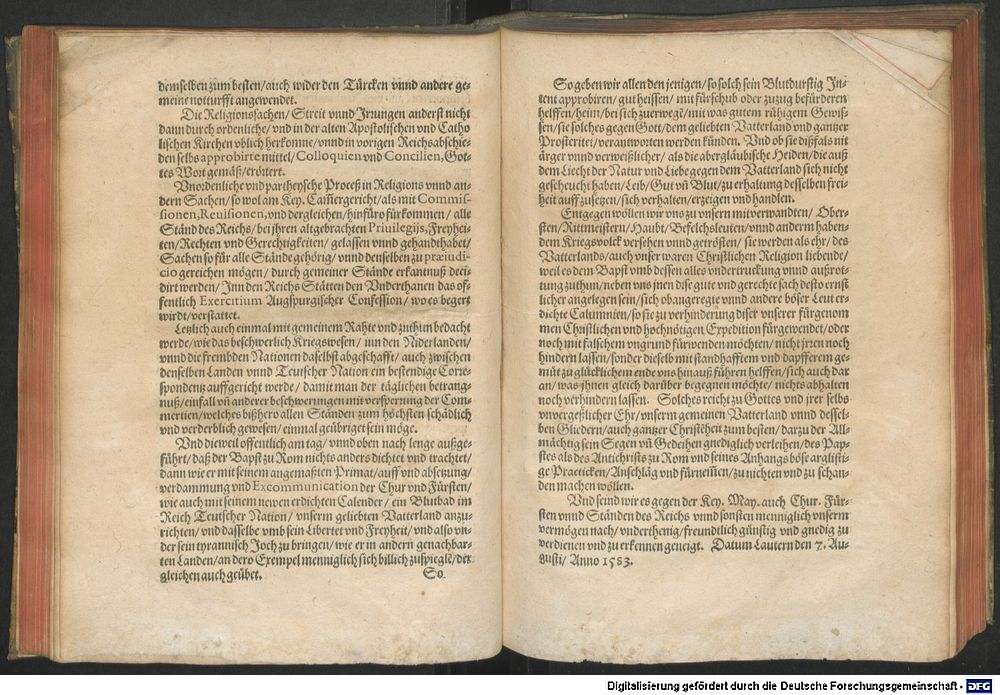 demselben zum besten/auch wider den Türcken vnnd andere ge-
meine notturfft angewendet.
Die Religionssachen/ Streit vnnd Irrungen anderst nicht
dann durch ordenliche/ vnd in der alten Apostolischen vnd Catho
lischen Kirchen vblich herkomne/ vnnd in vorigen Reichsabschie-
den selbs approbirte mittel/ Colloquien vnd Concilien, Got-
tes Wort gemäß/ erörtert.
Vnordenliche vnd partheysche Proceß in Religions vnnd an-
dern Sachen/ so wol am Key. Cam̃ergericht/ als mit Commis-
sionen, Reuisionen, vnd dergleichen/ hinfüro fürkommen/ alle
Ständ des Reichs/ bei jhren altgebrachten Priuilegijs, Freyhei-
ten/ Rechten vnd Gerechtigkeiten/ gelassen vnnd gehandthabet/
Sachen so für alle Stände gehörig/ vnnd denselben zu præiudi-
cio gereichen mögen/ durch gemeiner Stände erkantnuß deci-
dirt werden/ Inn den Reichs Stätten den Vnderthanen das of-
fentlich Exercitium Augspurgischer Confession/ wo es begert
wirdt/ verstattet.
Letzlich auch einmal mit gemeinem Rahte vnd zuthun bedacht
werde/ wie das beschwerlich Kriegswesen/ inn den Niderlanden/
vnnd die frembden Nationen daselbst abgeschafft/ auch zwischen
denselben Landen vnnd Teutscher Nation ein bestendige Corre-
spondentz auffgericht werde/ damit man der täglichen betrang-
nuß/ einfall vñ anderer beschwerungen mit versperrung der Com-
mertien/ welches bißhero allen Ständen zum höchsten schädlich
vnd verderblich gewesen/ einmal geübriget sein möge.
Vnd dieweil offentlich am tag/ vnnd oben nach lenge außge-
führt/ daß der Bapst zu Rom nichts anders dichtet vnd trachtet/
dann wie er mit seinem angemaßten Primat/ auff vnd absetzung/
verdammung vnd Excommunication der Chur vnd Fürsten/
wie auch mit seinem newen erdichten Calender/ ein Blutbad im
Reich Teutscher Nation/ vnserm geliebten Vatterland anzu-
richten/ vnd dasselbe vmb sein Libertet vnd Freyheit/ vnd also vn-
der sein tyrannisch Joch zu bringen/ wie er in andern genachbar-
ten Landen/ an dero Exempel menniglich sich billich zuspiegle/ der
gleichen auch geübet.
So
So geben wir allen den jenigen/ so solch sein Blutdurstig In-
tent approbiren/ gut heissen/ mit fürschub oder zuzug befürderen
helffen/ heim/ bei sich zuerwegē/ mit was gutem rühigem Gewis-
sen/ sie solches gegen Gott/ dem geliebten Vatterland vnd gantzer
Prosteritet/ verantworten werden künden. Vnd ob sie dißfals nit
ärger vnnd verweißlicher/ als die abergläubische Heiden/ die auß
dem Liecht der Natur vnd Liebe gegen dem Vatterland sich nicht
gescheucht haben/ Leib/ Gut vñ Blut/ zu erhaltung desselben frei-
heit auff zusetzen/ sich verhalten/ erzeigen vnd handlen.
Entgegen wöllen wir vns zu vnsern mitverwandten/ Ober-
sten/ Rittmeistern/ Haubt/ Befelchsleuten/ vnnd anderm haben-
dem Kriegsvolck versehen vnnd getrösten/ sie werden als ehr/ des
Vatterlands/ auch vnser waren Christlichen Religion liebende/
weil es dem Bapst vmb dessen alles vndertruckung vnnd außrot-
tung zuthun/ neben vns jnen dise gute vnd gerechte sach desto ernst
licher angelegen sein/ sich oban geregte vnnd andere böser Leut er-
dichte Calumnien/ so sie zu verhinderung diser vnserer fürgenom
men Christlichen vnd hochnötigen Expedition fürgewendet/ oder
noch mit falschem vngrund fürwenden möchten/ nicht jrren noch
hindern lassen/ sonder die selb mit standhafftem vnd dapfferem ge-
müt zu glücklichem ende vns hinauß führen helffen/ sich auch dar
an/ was jhnen gleich darüber begegnen möchte/ nichts abhalten
noch verhindern lassen. Solches reicht zu Gottes vnd jrer selbs
vnvergeßlicher Ehr/ vnserm gemeinen Vatterland vnnd dessel-
ben Gliedern/ auch gantzer Christēheit zum besten/ darzu der All-
mächtig sein Segen vñ Gedeihen gnediglich verleihen/ des Pap-
stes als des Antichrists zu Rom vnd seines Anhangs böse arglisti-
ge Practicken/ Anschläg vnd fürnem̃en/ zu nichten vnd zu schan-
den machen wöllen.
Vnd seind wir es gegen der Key. May. auch Chur. Für-
sten vnnd Ständen des Reichs vnnd sonsten menniglich vnserm
vermögen nach/ vnderthenig/ freundtlich günstig vnd gnedig zu
verdienen vnd zu erkennen geneigt. Datum Lautern den 7. Au-
gusti/ Anno 1583.
Digitalisierung gefördert durch die Deutsche Forschungsgemeinschaft - DFG